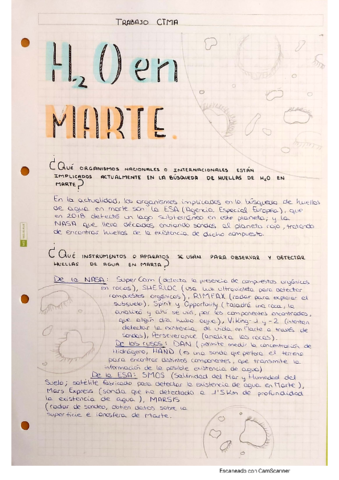 TRABAJO CTMA
H2O en
MARTE.
¿QUÉ ORGANISMOS NACIONALES O INTERNACIONALES ESTÁN
IMPLICADOS ACTUALMENTE EN LA BÚSQUEDA DE HUELLAS DE H2O EN
MARTE?
En la actualidad, los organismos implicados en la búsqueda de huellas
de agua en marte son la ESA (Agencia Espacial Europea), que
en 2018 detectó un lago subterráneo en este planeta, y la
NASA que lleva décadas enviando sondas al planeta rojo, tratando
de encontrar huellas de la existencia de dicho compuesto.
¿QUÉ INSTRUMENTOS O APARATOS SE USAN PARA OBSERVAR Y DETECTAR
HUELLAS DE AGUA EN MARTE?
De la NASA: SuperCam (detecta la presencia de compuestos orgánicos
en rocas), SHERLOC (usa luz ultravioleta para detectar
compuestos orgánicos), RIMFAX (radar para explorar el
subsuelo), Spirit y Opportunity (taladró una roca, la
analizó y así se vio, por los componentes encontrados,
que algún día hubo agua), Viking-1 y -2 (intentan
detectar la existencia de vida en Marte a través de
sondas), Perseverance (analiza las rocas).
De los rusos: DAN (permite medir la concentración de
hidrógeno), HAND (es una sonda que
para encontrar distintos componentes, que transmite la
información de la posible existencia de agua)
De la ESA: SMOS (Salinidad del Mar y Humedad del
Suelo, satélite fabricado para detectar la existencia de agua en Marte),
Mars Express (sonda que ha detectado a 1'5 Km de profundidad
la existencia de agua), MARSIS
(radar de sondeo, obtiene datos sobre la
superficie e ionosfera de Marte.
Escaneado con CamScanner